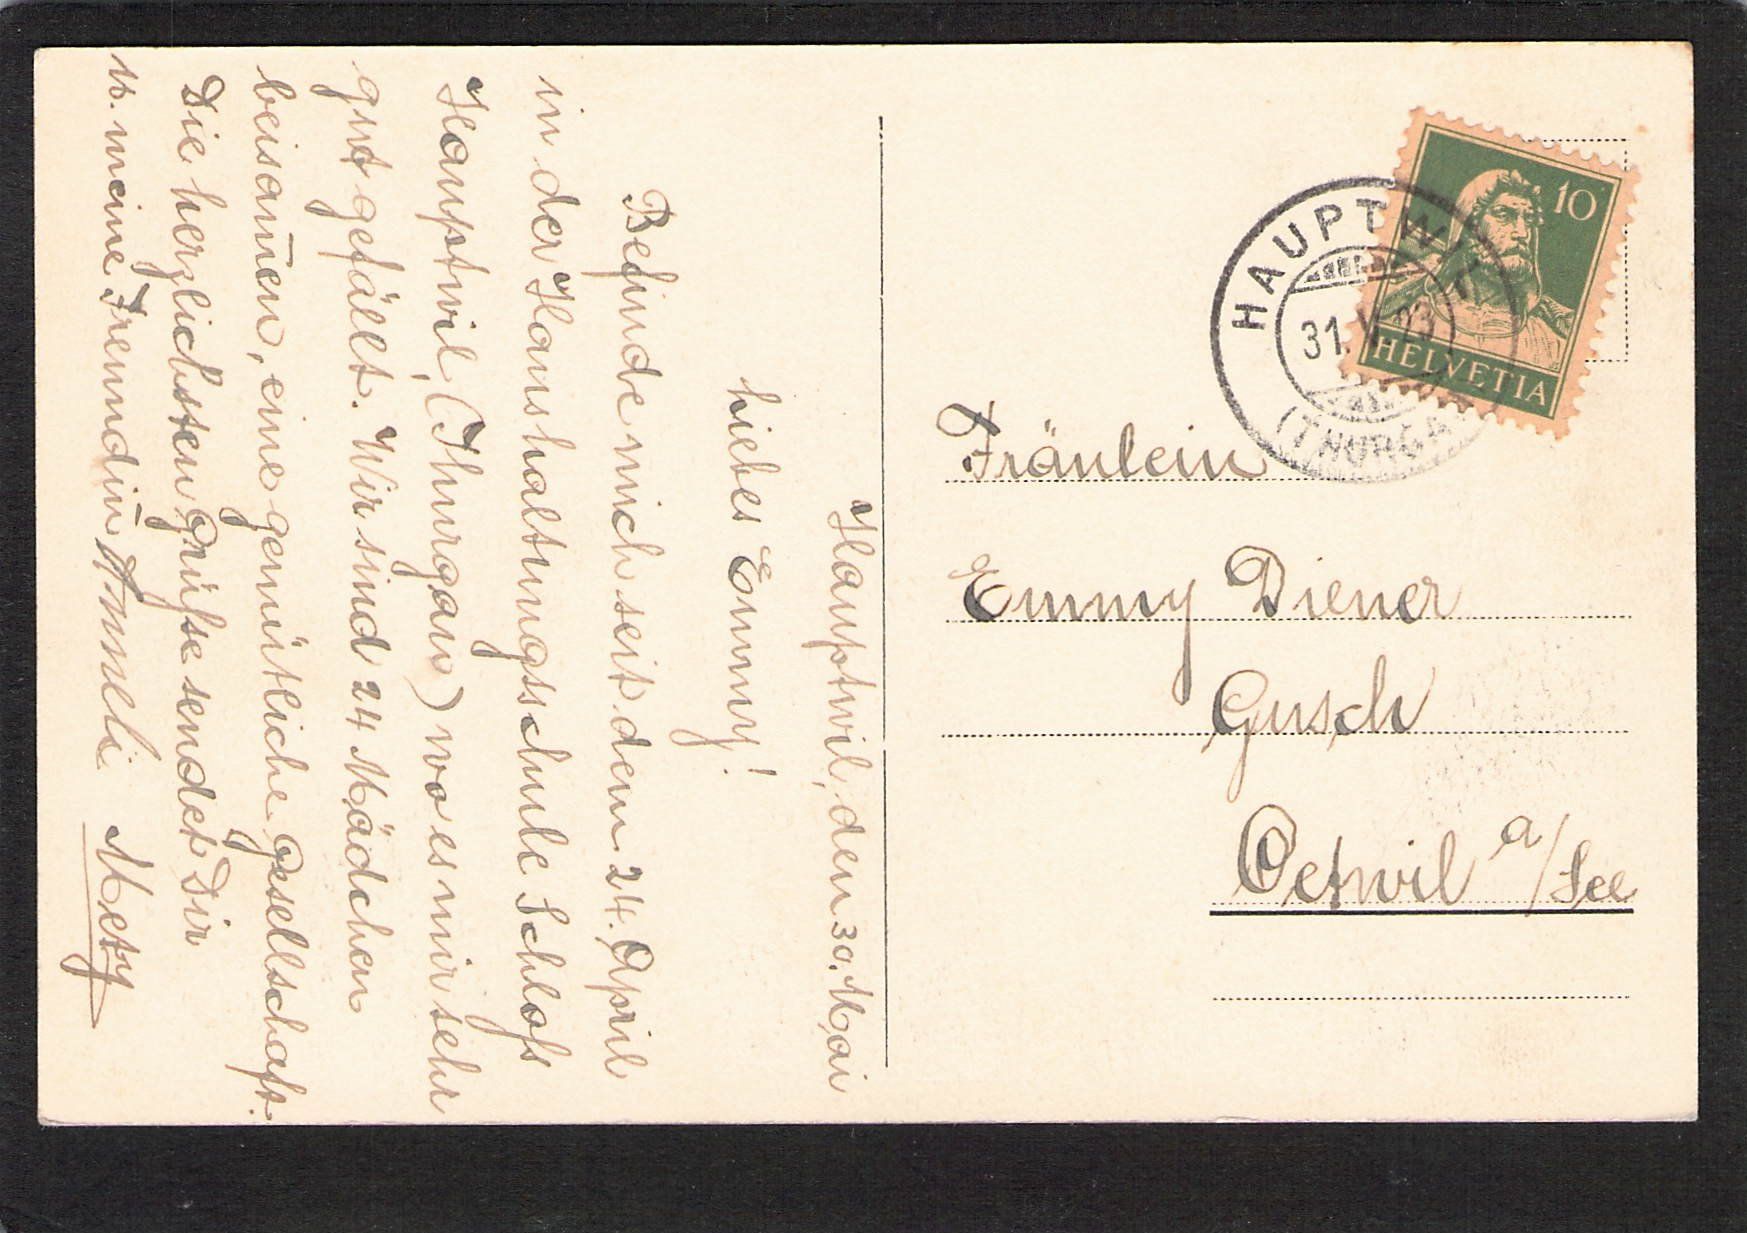 Hauptwil, den 30. Mai
Liebes Emmy!
Befinde mich seit dem 24. April
in der Haushaltungsschule Schloß
Hauptwil, (Thurgau) wo es mir sehr
gut gefällt. Wir sind 24 Mädchen
beisam̄en, eine gemütliche Gesellschaft.
Die herzlichsten Grüße sendet Dir
u. meine Freundin Anneli
HAUPTWIL
31. V. 23
(THURGAU)
10
HELVETIA
Fräulein
Emmy Diener
Gusch
Oetwil a/See